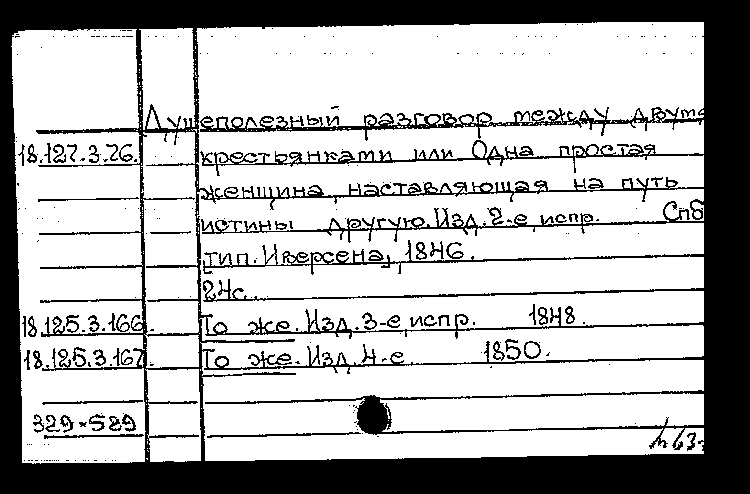 Душеполезный разговор между двумя
18.127.3.76. крестьянками или Одна простая
женщина, наставляющая на путь
истины другую. Изд. 2-е, испр. Спб
тип. Иверсена, 1846.
24с.
18.125.3.166. То же. Изд. 3-е, испр. 1848.
18.125.3.167. То же. Изд. 4-е 1850.
329*589